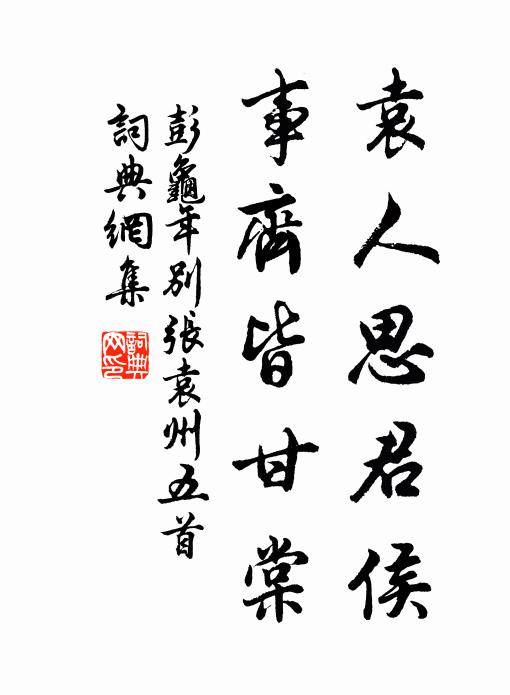 袁人思君侯
事齊皆甘棠
彭龜年別張袁州五首
詞典網集
詞典网印